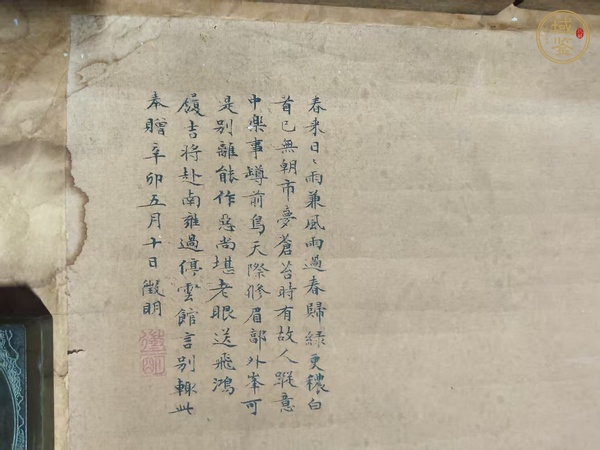 春来日〻雨兼风雨過春歸緑更穠白
首已無朝市夢蒼苔時有故人蹤意
中樂事蹲前鳥天際脩眉郭外峯可
是别離能作惡尚堪老眼送飛鴻
履吉将赴南雍過停雲館言别輙此
奉贈辛卯五月十日徵明
徵明